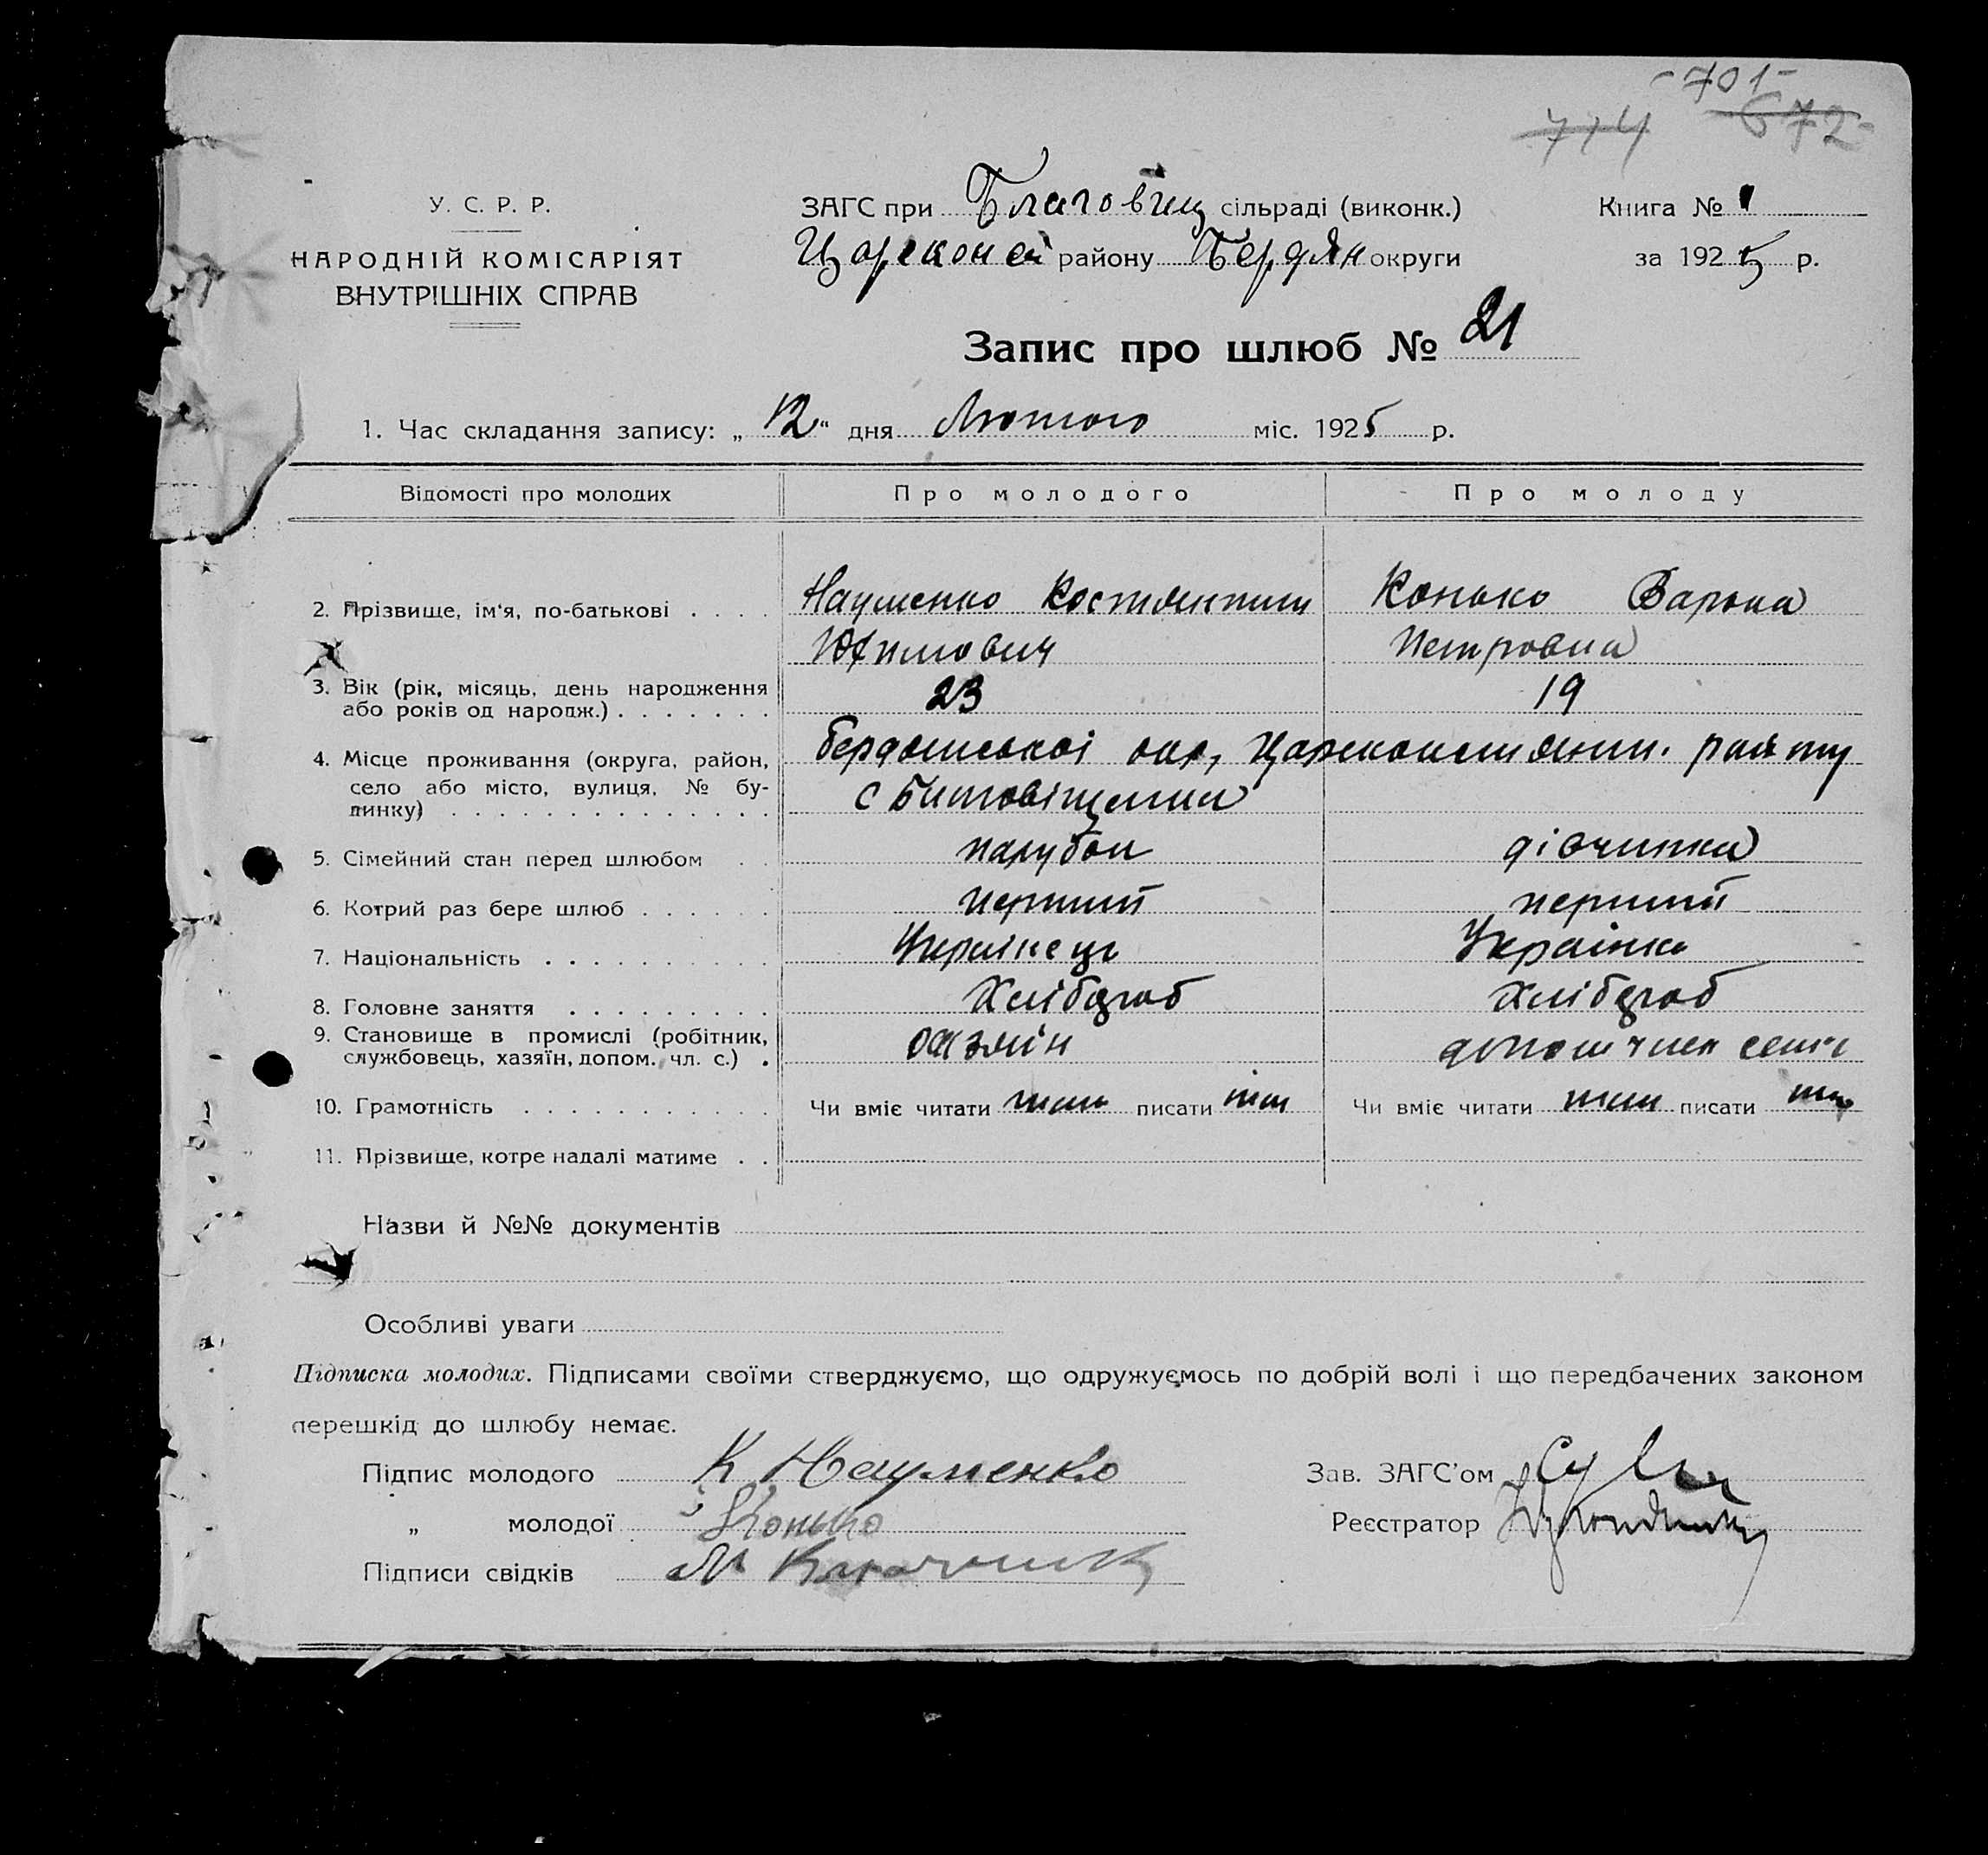 -701-
714 672-
У. С. Р. Р.
НАРОДНІЙ КОМІСАРІЯТ
ВНУТРІШНІХ СПРАВ
ЗАГС при Благовіщ сільраді (виконк.)
Царекон району Бердян округи
Книга № 1
за 1925 р.
Запис про шлюб № 21
1. Час складання запису: „12“ дня Лютого міс. 1925 р.
Відомості про молодих Про молодого Про молоду
2. Прізвище, ім'я, по-батькові . . . . Науменко Костянтин Конько Варька
Юхимович Петровна
3. Вік (рік, місяць, день народження
або років од народж.) . . . . . . . 23 19
4. Місце проживання (округа, район,
село або місто, вулиця, № бу-
динку) . . . . . . . . . . . . . .
Бердянської окр,
с Благовіщенки
5. Сімейний стан перед шлюбом . . парубок дівчинка
6. Котрий раз бере шлюб . . . . . . перший перший
7. Національність . . . . . . . . . . Українець Українка
8. Головне заняття . . . . . . . . . Хлібороб Хлібороб
9. Становище в промислі (робітник,
службовець, хазяїн, допом. чл. с.) . хазяїн член семї
10. Грамотність . . . . . . . . . . . Чи вміє читати писати Чи вміє читати писати
11. Прізвище, котре надалі матиме . .
Назви й №№ документів
Особливі уваги
Підписка молодих. Підписами своїми стверджуємо, що одружуємось по добрій волі і що передбачених законом
перешкід до шлюбу немає.
Підпис молодого К Науменко
„ молодої Конько
Підписи свідків М
Зав. ЗАГС'ом
Реєстратор